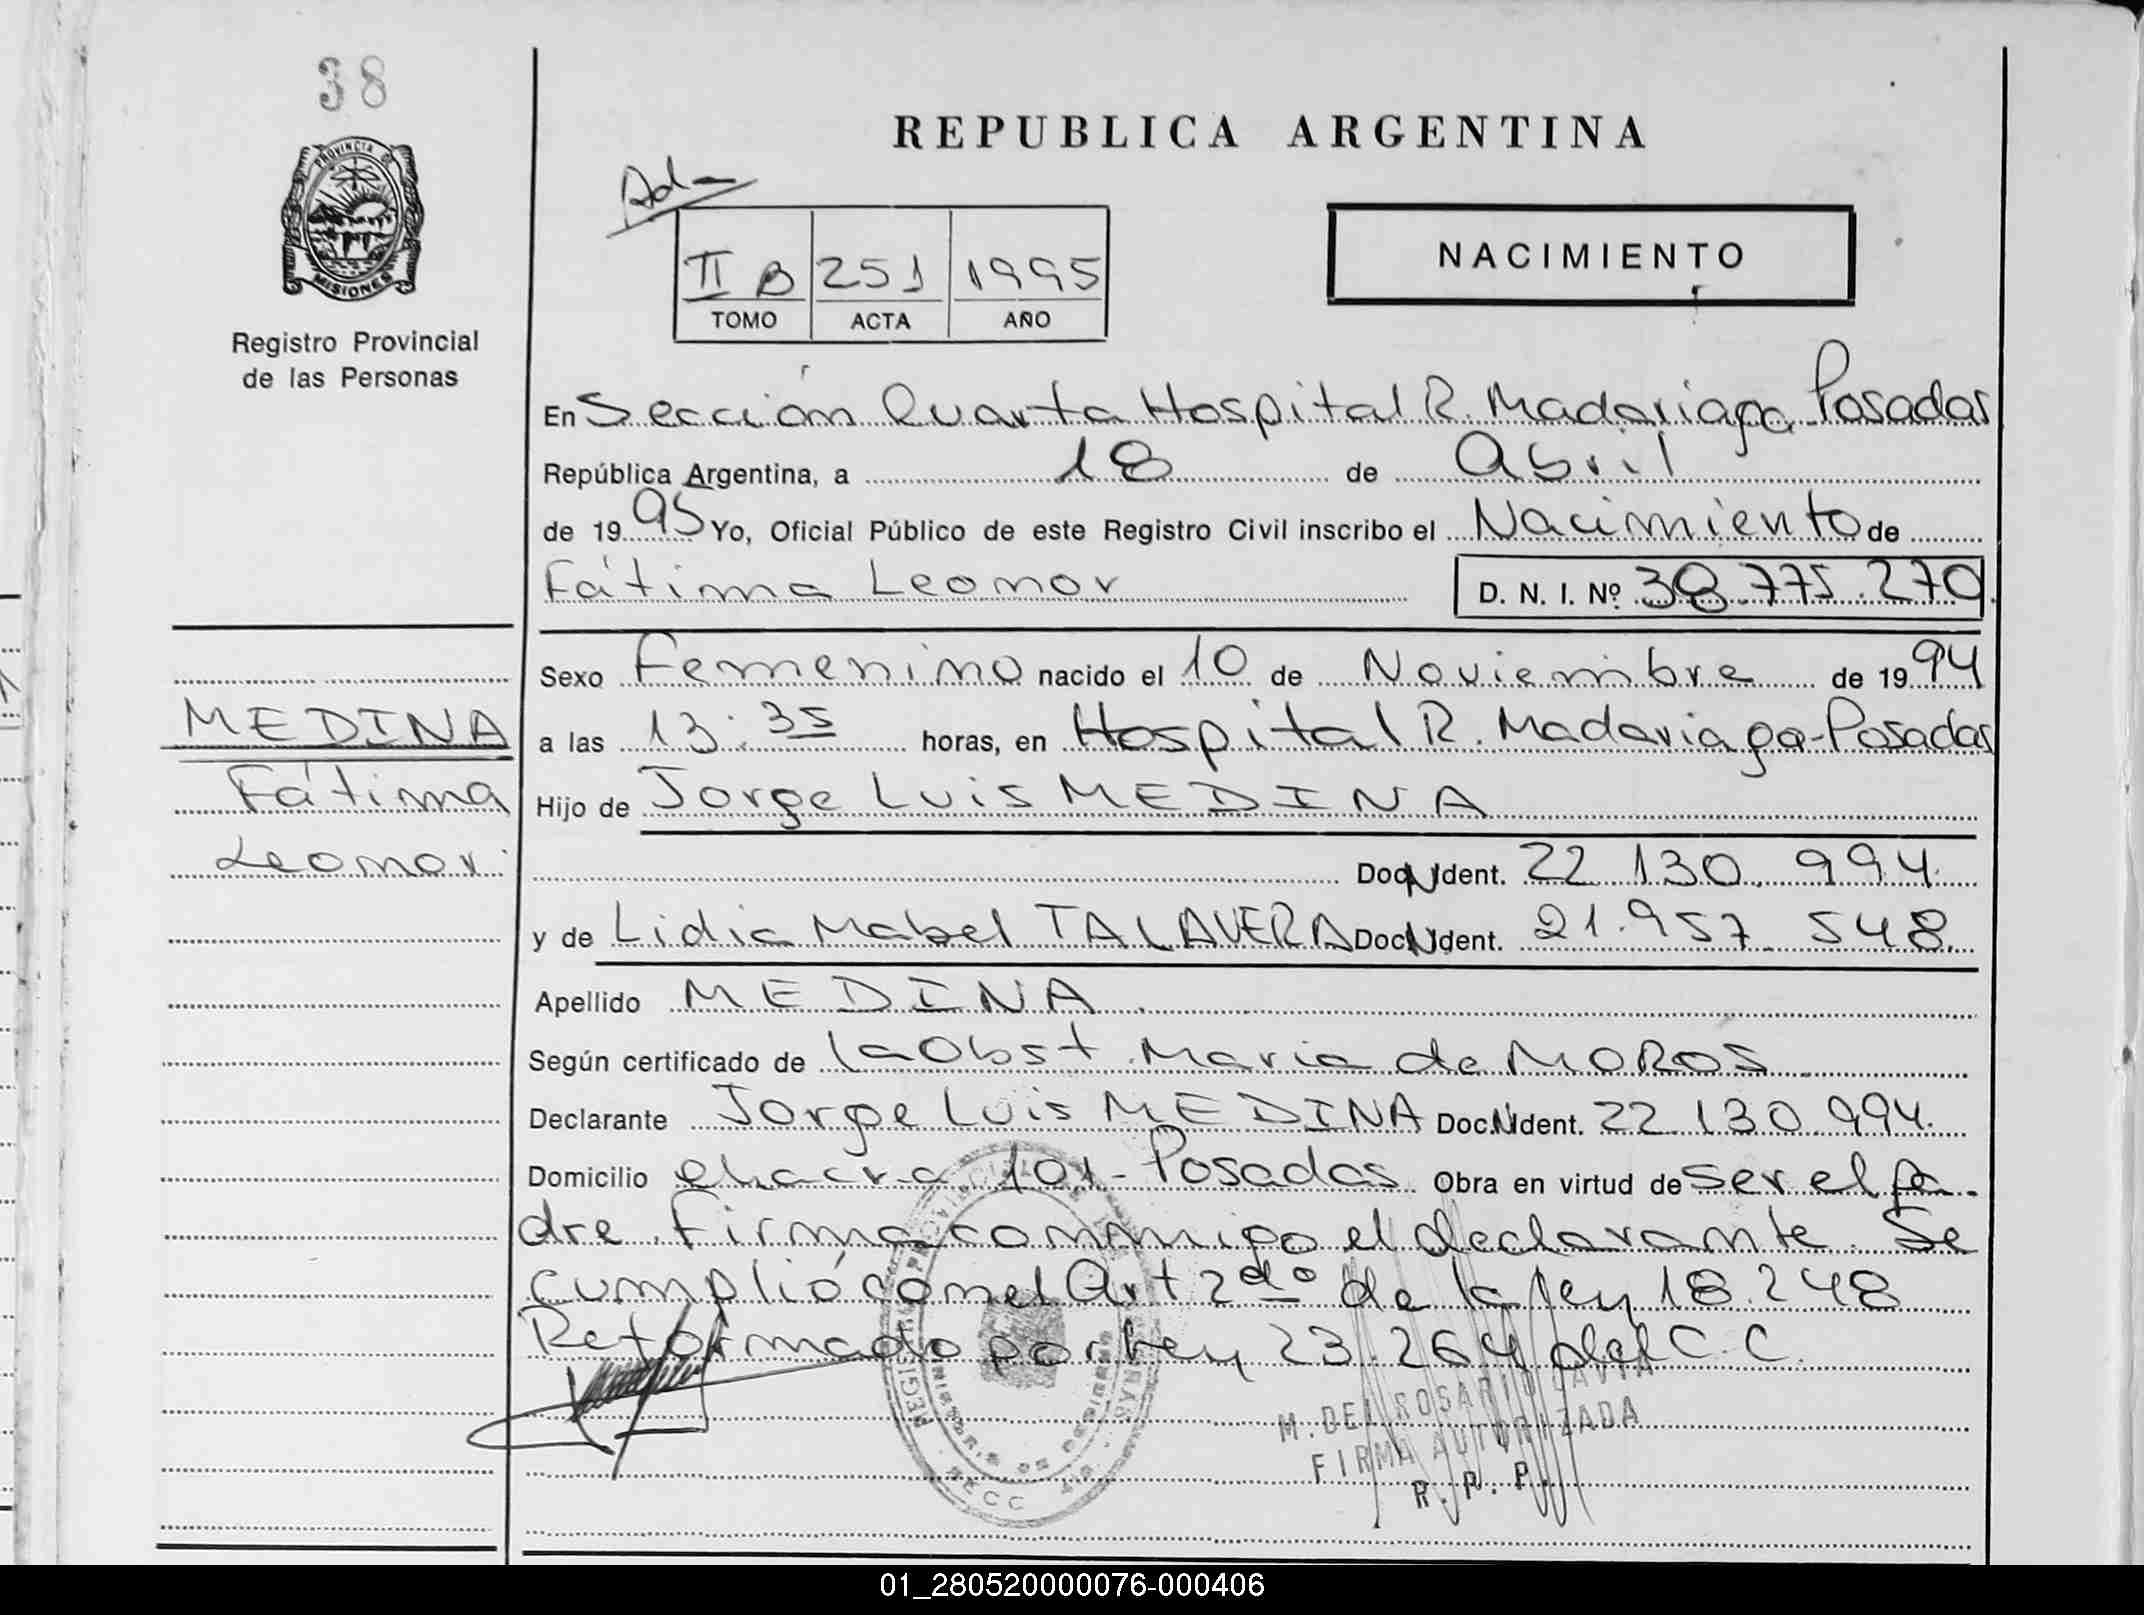 38
REPUBLICA ARGENTINA
PROVINCIA DE
MISIONES
Registro Provincial
de las Personas
II B 251 1995
TOMO ACTA AÑO
NACIMIENTO
En Sección Quarta Hospital R. Madariaga Posadas
República Argentina, a 18 de Abril
de 1995 Yo, Oficial Público de este Registro Civil inscribo el Nacimiento de
Fátima Leonor D. N. I. Nº 38.775.270
Sexo Femenino nacido el 10 de Noviembre de 1994
MEDINA
a las 13:35 horas, en Hospital R. Madariaga-Posadas
Fátima
Hijo de Jorge Luis MEDINA
Leonor.
Doc N Ident. 22.130.994.
y de Lidia Mabel TALAVERA Doc N Ident. 21.957.548.
Apellido MEDINA.
Según certificado de la Obst. Maria de MOROS.
Declarante Jorge Luis MEDINA Doc.N Ident. 22.130.994.
Domicilio chacra 101- Posadas. Obra en virtud de ser el pa-
dre. Firma conmigo el declarante. Se
cumplió con el Art 2do de la ley 18.248
Reformado por ley 23.264 del C.C.
M. DEL ROSARIO
FIRMA AUTORIZADA
R. P. P.
01_280520000076-000406